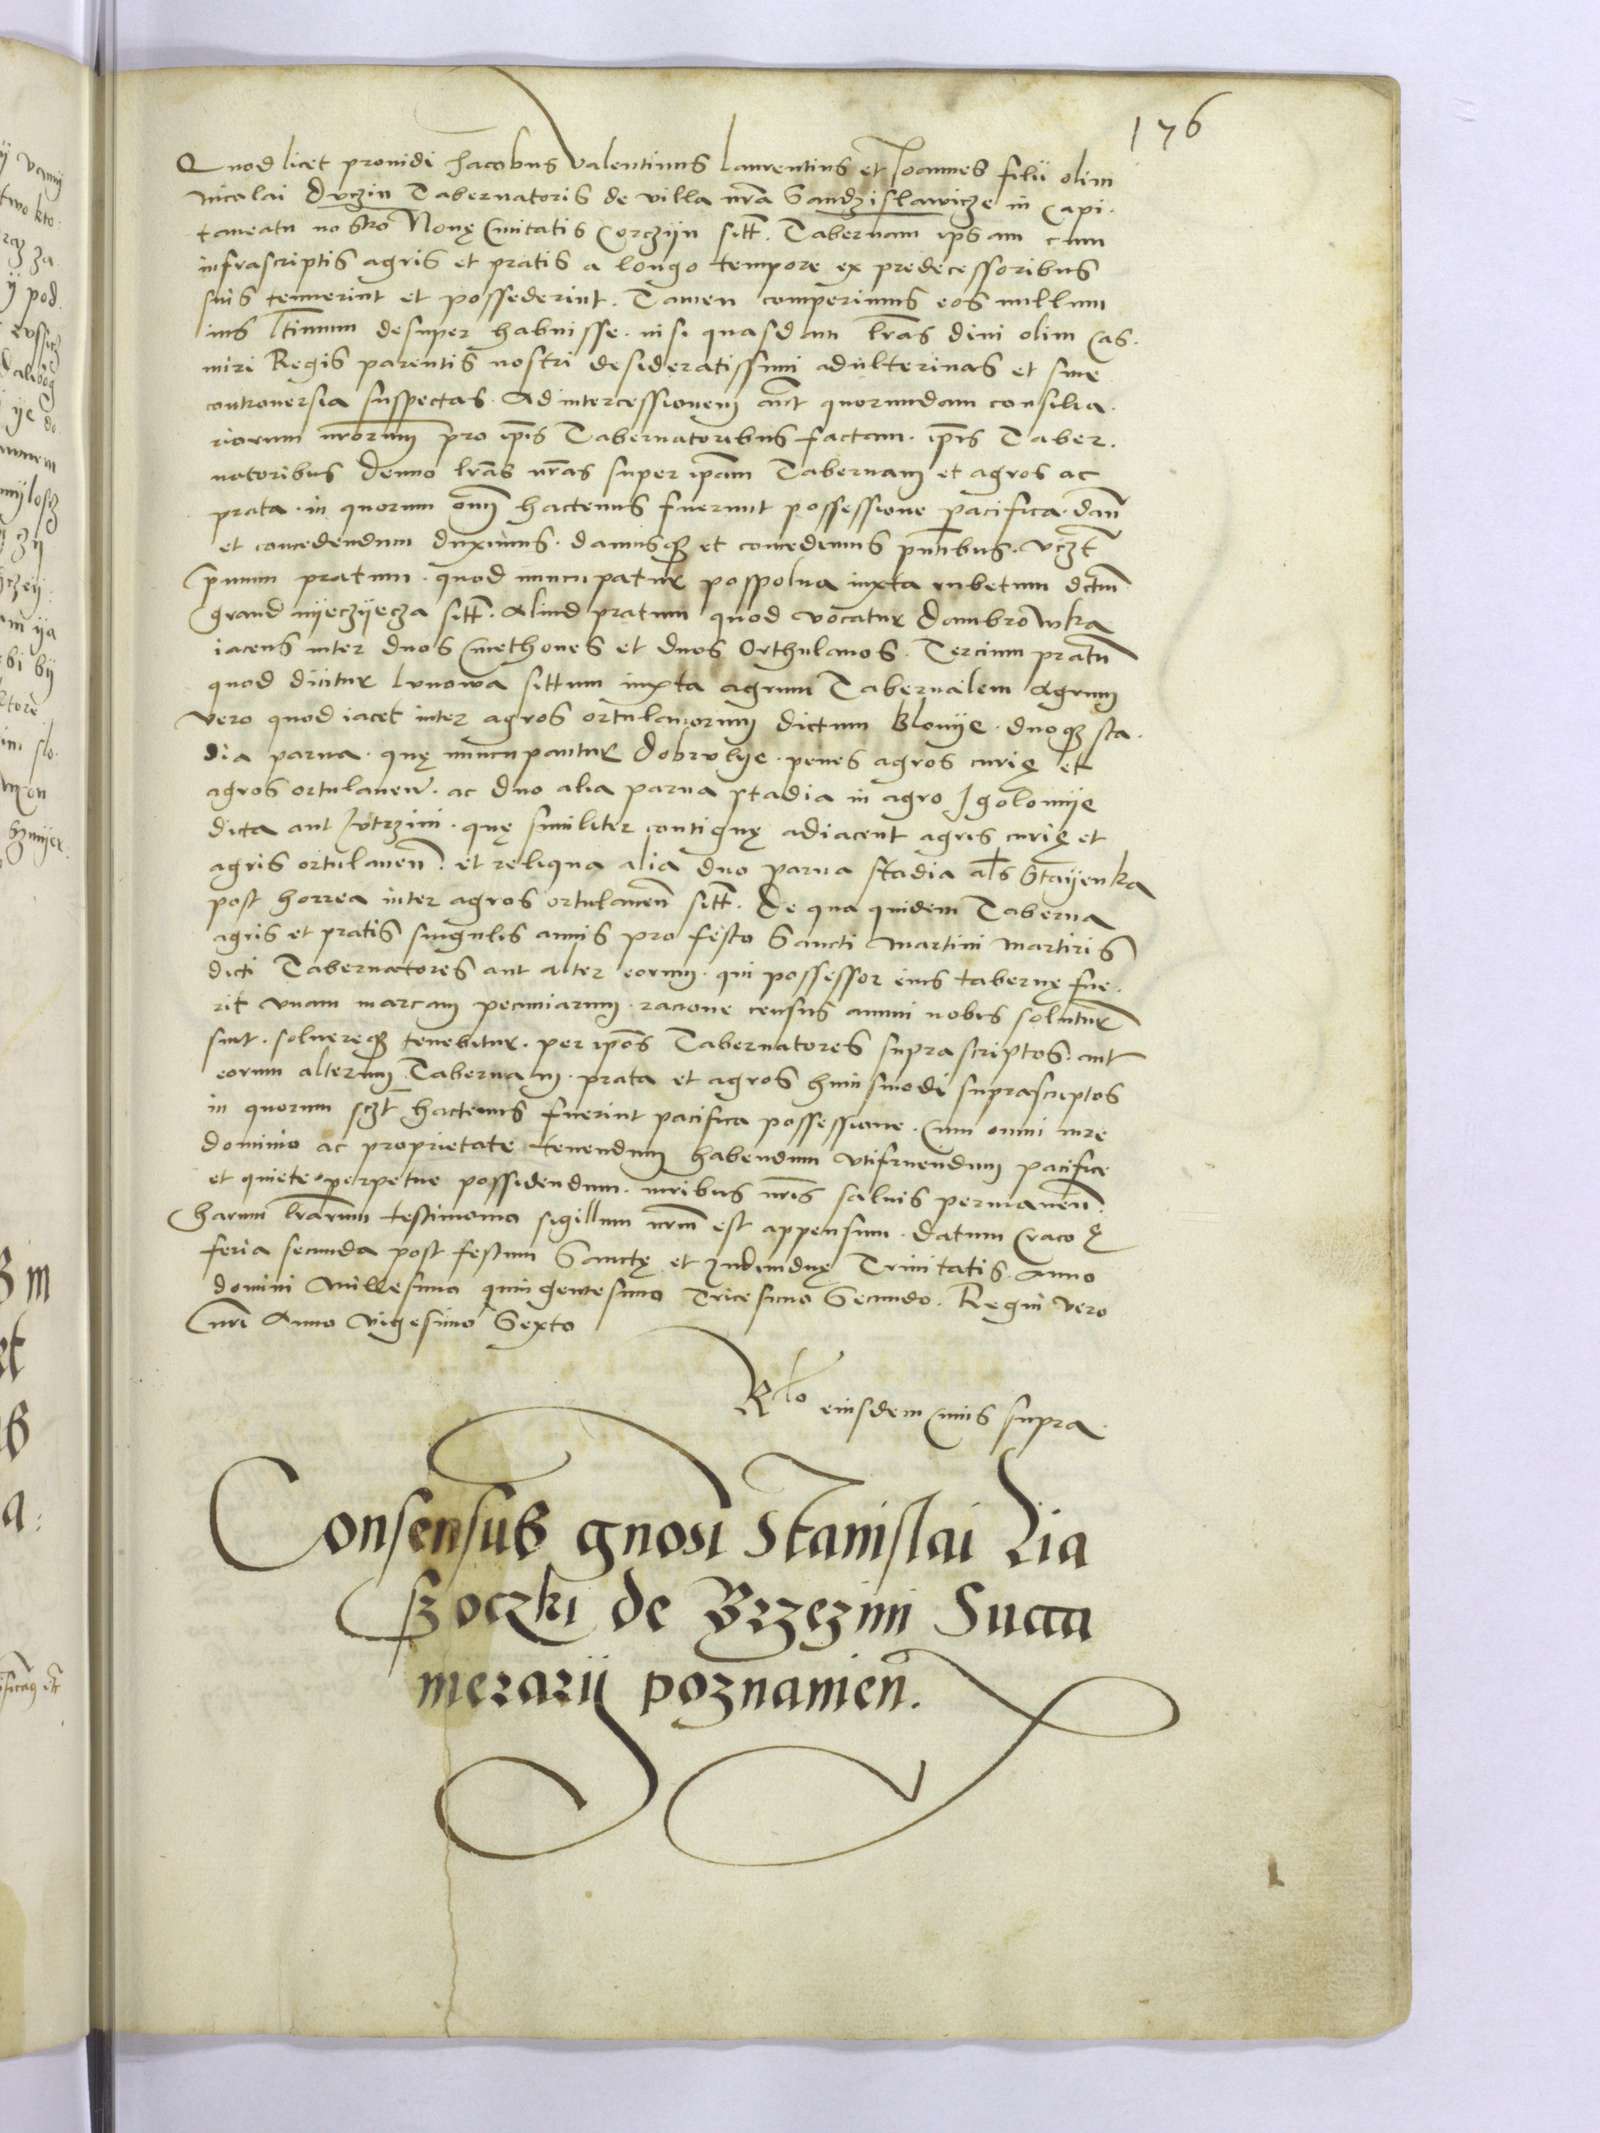 176
Quod licet prouidi Jacobus Valentinus Laurentius et Joannes filii olim
Nicolai Dyczin Tabernatoris de villa nrā Sandzislawicze in Capi-
taneatu nostro Nouę Ciuitatis Corczijn sitt. Tabernam ipsam cum
infrascriptis agris et pratis a longo tempore ex predecessoribus
suis tenuerint et possederint. Tamen comperimus eos nullum
ius ltimum desuper habuisse. nisi quasdam lrās diui olim Cas-
miri Regis parentis nostri desideratissimi adulterinas et sine
controuersia suspectas. Ad intercessionem aūt quorundam consilia-
riorum nrōrum pro ipīs Tabernatoribus factam. ipīs Taber-
natoribus denuo lrās nrās super ipām Tabernam et agros ac
prata. in quorum om̄i hactenus fuerunt possessione pacifica. dan̄
et concedendum duximus. damusq et concedimus pn̄tibus. vczt
Primum pratum. quod nuncupatur pospolna iuxta rubetum dctm̄
Grand nyeczyecza sitt. Aliud pratum quod vocatur Dambrowka
iacens inter duos Cmethones et duos Orthulanos. Tercium pratū
quod dicitur Lunowa sittum iuxta agrum Tabernalem Agrum
vero quod iacet inter agros ortulanorum dictum Blonije. duoq sta-
dia parua. quę nuncupantur Dobrolije. penes agros curię et
agros ortulanen. ac duo alia parua stadia in agro Igolomije
dicta aut Jutrzini. quę similiter contiguę adiacent agris curię et
agris ortulanen̄. et reliqua alia duo parua stadia als Stayenka
post horrea inter agros ortulanen̄ sitt. De qua quidem Taberna
agris et pratis singulis annis pro festo Sancti Martini Martiris
dicti Tabernatores aut alter eorum. qui possessor eius tabernę fue-
rit vnam marcam pecuniarum. racione census annui nobis soluturi
sint. soluereq tenebitur. per ipōs Tabernatores suprascriptos. aut
eorum alterum Tabernam. prata et agros huiusmodi suprascriptos
in quorum sczt hactenus fuerint pacifica possessione. cum omni iure
dominio ac proprietate tenendum habendum vtifruendum pacifice
et quiete perpetue possidendum. iuribus nrīs saluis permanen̄.
Harum lrārum testimonio sigillum nrm̄ est appensum. Datum Cracoę
feria secunda post festum Sanctę et Indiuiduę Trinitatis. Anno
domini Millesimo quingentesimo Tricesimo Secundo. Regni vero
nrī Anno Vigesimo Sexto
Rlo eiusdem cuius supra.
Consensus gnosi Stanislai Lia
szoczki de Brzezini Succa
merarij poznanien.